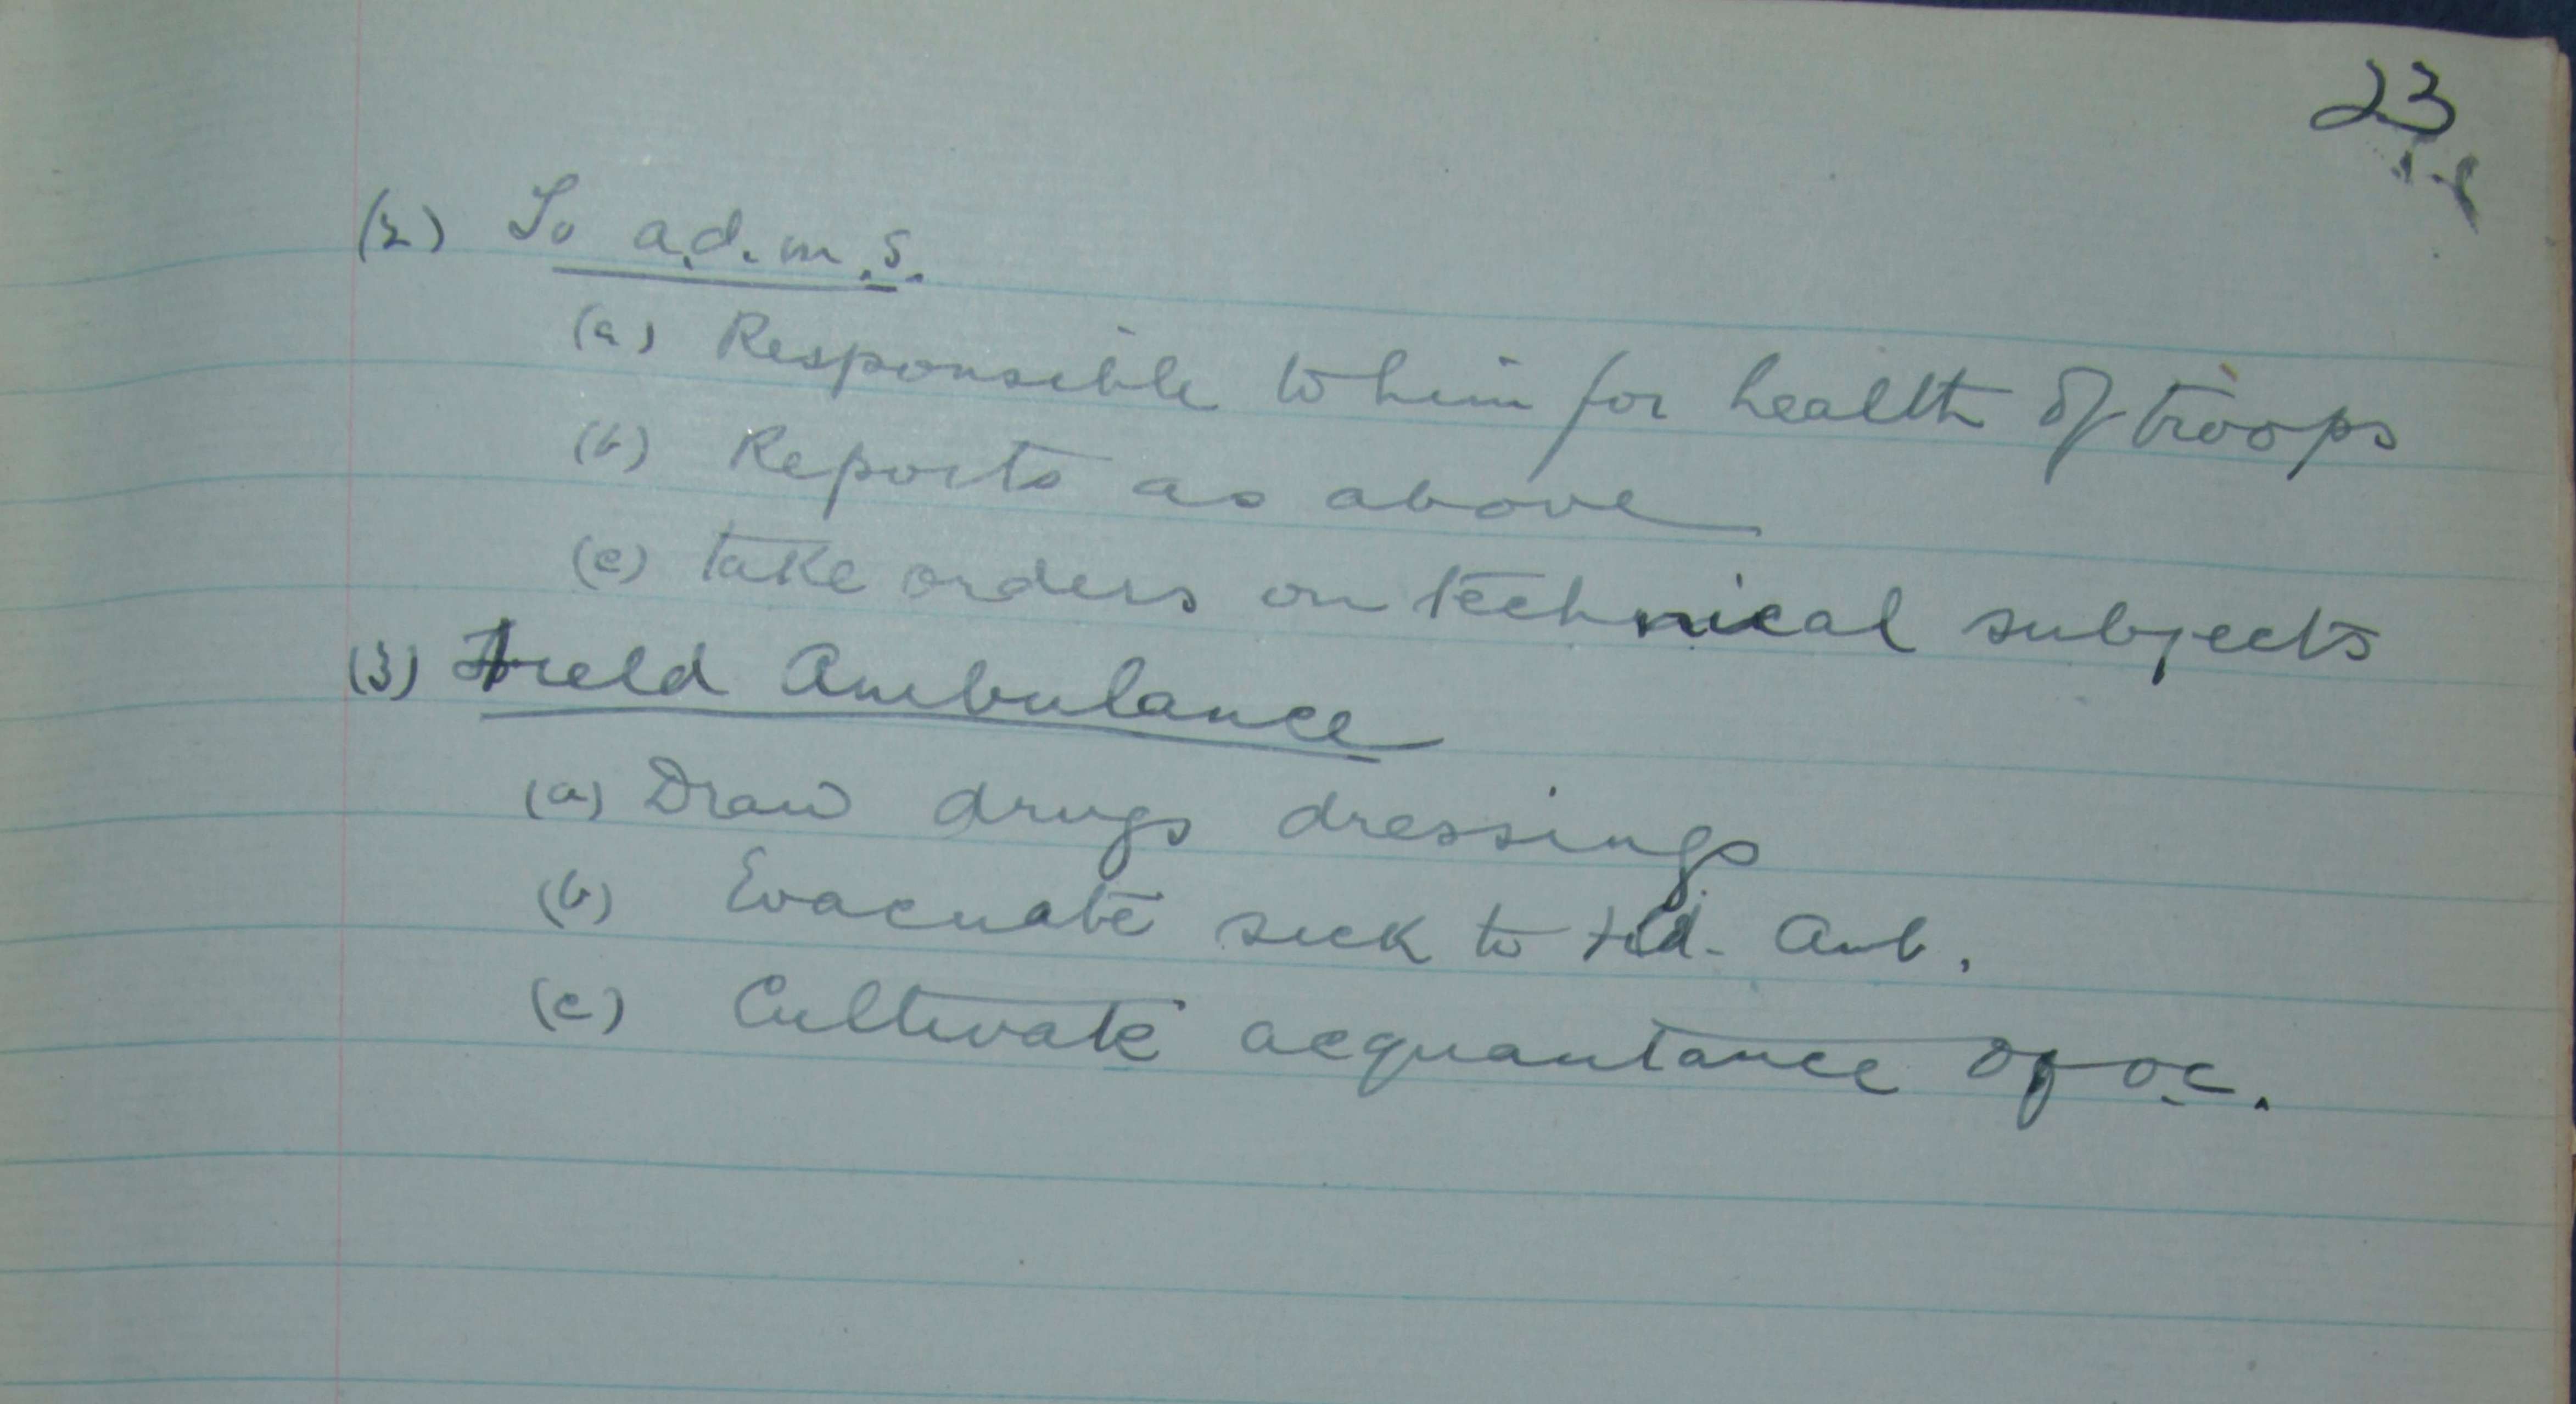 23
(2) To a.d.m.s.
(a) Responsible to him for health of troops
(b) Reports as above
(c) take orders on technical subjects
(3) Field Ambulance
(a) Draw drugs dressings
(b) Evacuate sick to Fld. Amb.
(c) Cultivate acquantance of oc.